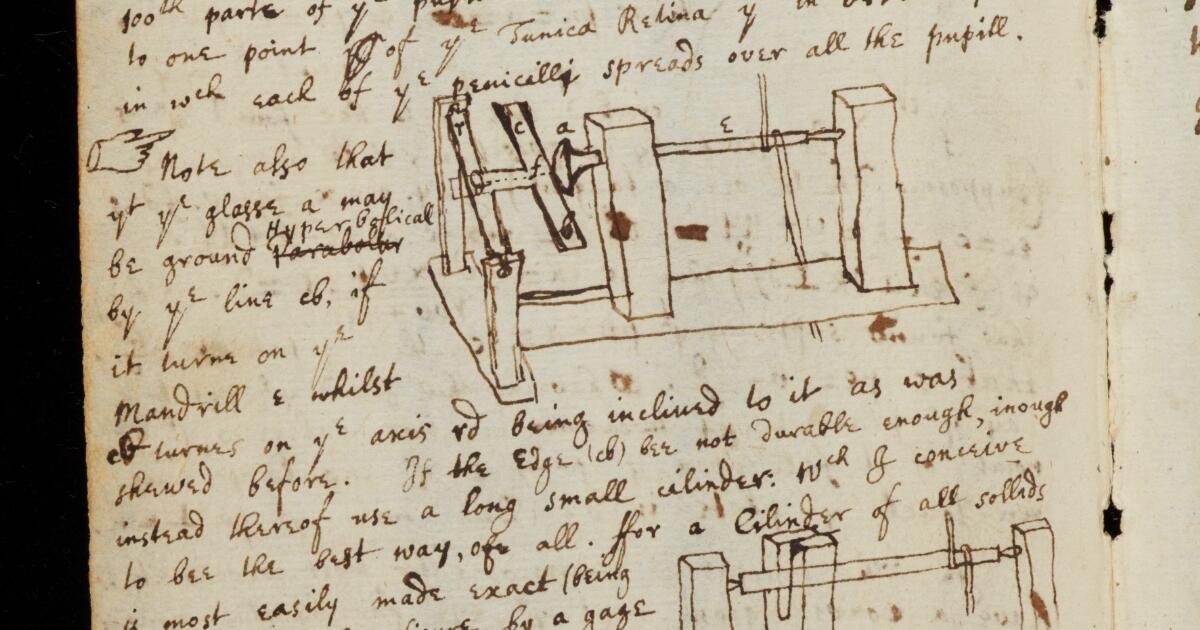 100th parte of ye
to one point of ye Tunica Retina y in
in wch each of ye penicilli spreads over all the pupill.
r c a f b ε d
Note also that
yt ye glasse a may
Hyperbolical
be ground Parabolar
by ye line cb, if
it turne on ye
Mandrill ε whilst
cb turnes on ye axis rd being inclined to it as was
shewed before. If the Edge (cb) bee not durable enough, inough
instead thereof use a long small cilinder: wch I conceive
to bee the best way, of all. ffor a Cilinder of all sollids
is most easily made exact (being
by a gage